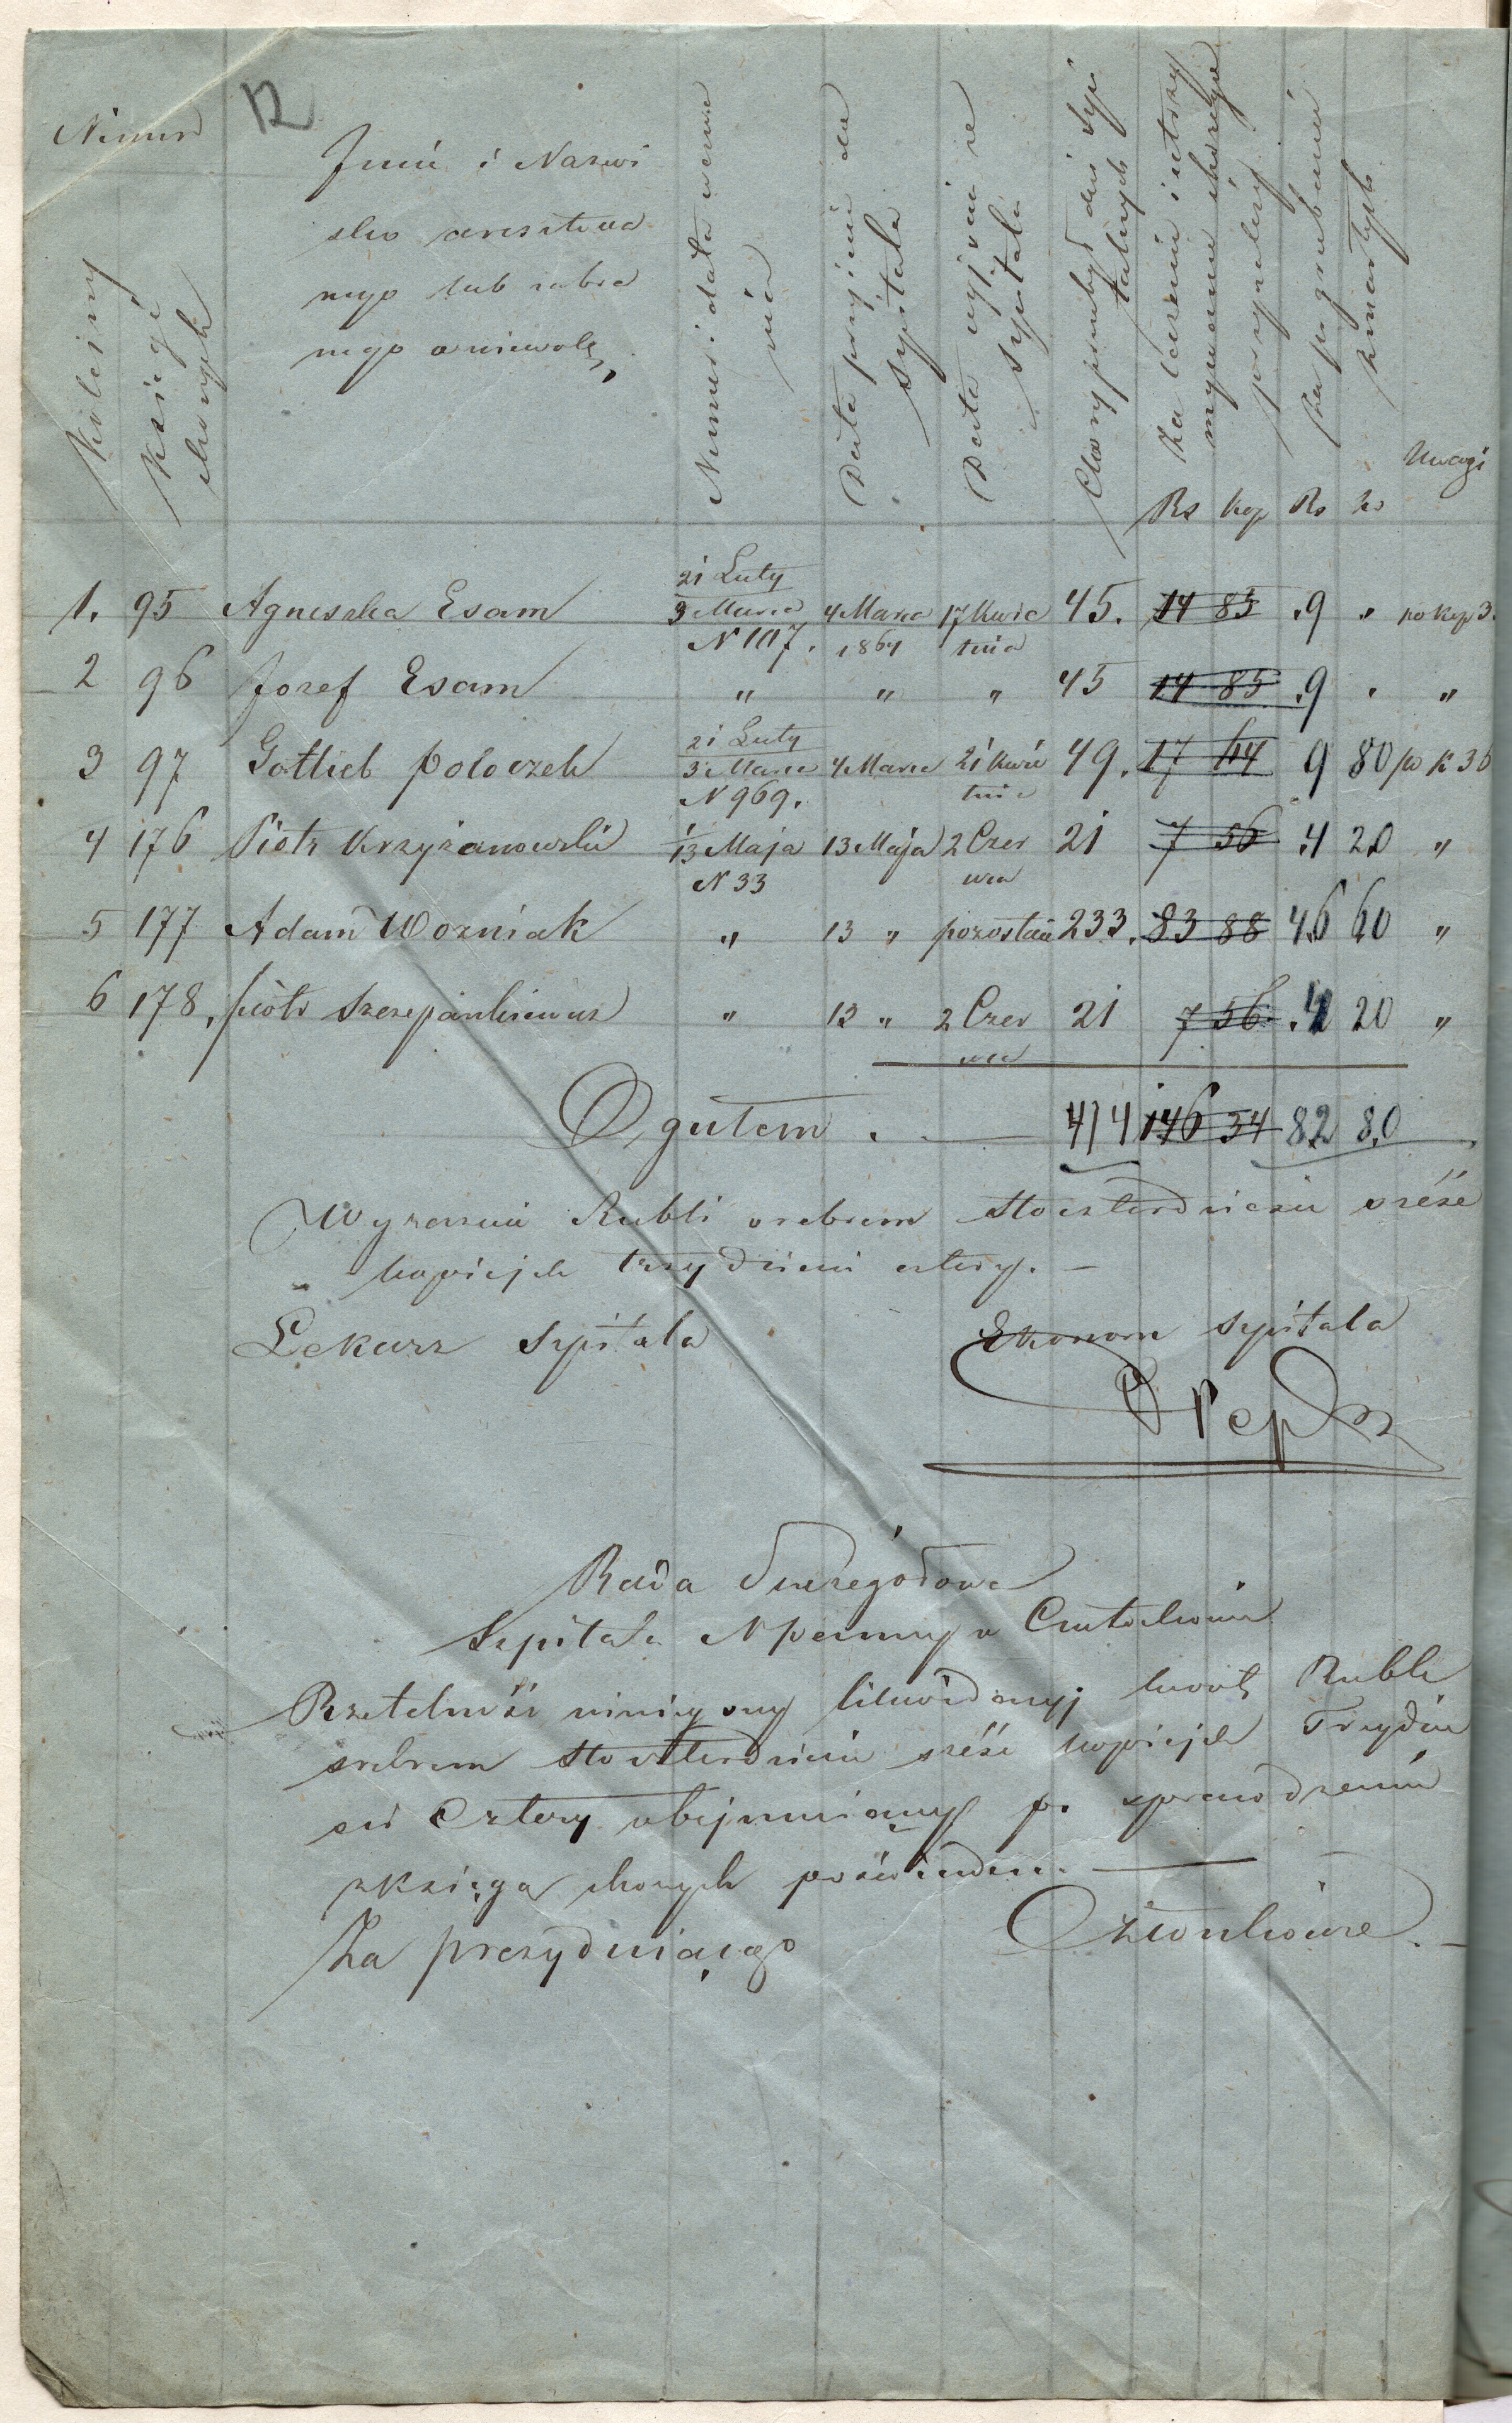 12
Numer
Kolejny
Księgi
chorych
Imie i Nazwi
sko aresztowa
nego lub zabra
nego w niewolę
Numer i data wezwa
nia
Data przyjęcia do
Szpitala
Data wyjścia ze
Szpitala
Chory przebył dni szpi
talnych
Za leczenie i utrzy
mywanie chorego
przypada
Za pogrzebanie
zmarłych
Uwagi
Rs kop Rs ko
1. 95 Agnieszka Esam 21 Luty 3 Marca N 107. 4 Marca 1864 17 Kwie tnia 45. 14 85 9 " po kop 3
2 96 Jozef Esam " " " 45 14 85 9 " "
3 97 Gotlieb Poloczek 21 Luty 3 Marca N 969. 4 Marca 21 Kwie tnia 49. 17 64 9 80 po k 36
4 176 Piotr Krzyżanowski 1 13 Maja N 33 13 Maja 2 Czer wca 21 7 56 4 20 "
5 177 Adam Wozniak " 13 " pozostaie 233. 83 88 46 60 "
6 178. Piotr Szczepankiewicz " 13 " 2 Czer wca 21 7 56 4 20 "
Ogułem . 414 146 34 82 80
Wyraźnie Rubli srebrem Stoczterdzieści sześć
kopiejek trzydzieści cztery. –
Lekarz Szpitala Ekonom Szpitala
Rada Szczegółowa
Szpitala N Panny w Częstochowie
Rzetelność niniejszej likwidacyj kwotę Rubli
srebrem Stoczterdzieści sześć kopiejek Trzydzie
ści Cztery obejmującej po sprawdzeniu
z księgą chorych poświadcza. –
Za prezydującego Członkowie. –